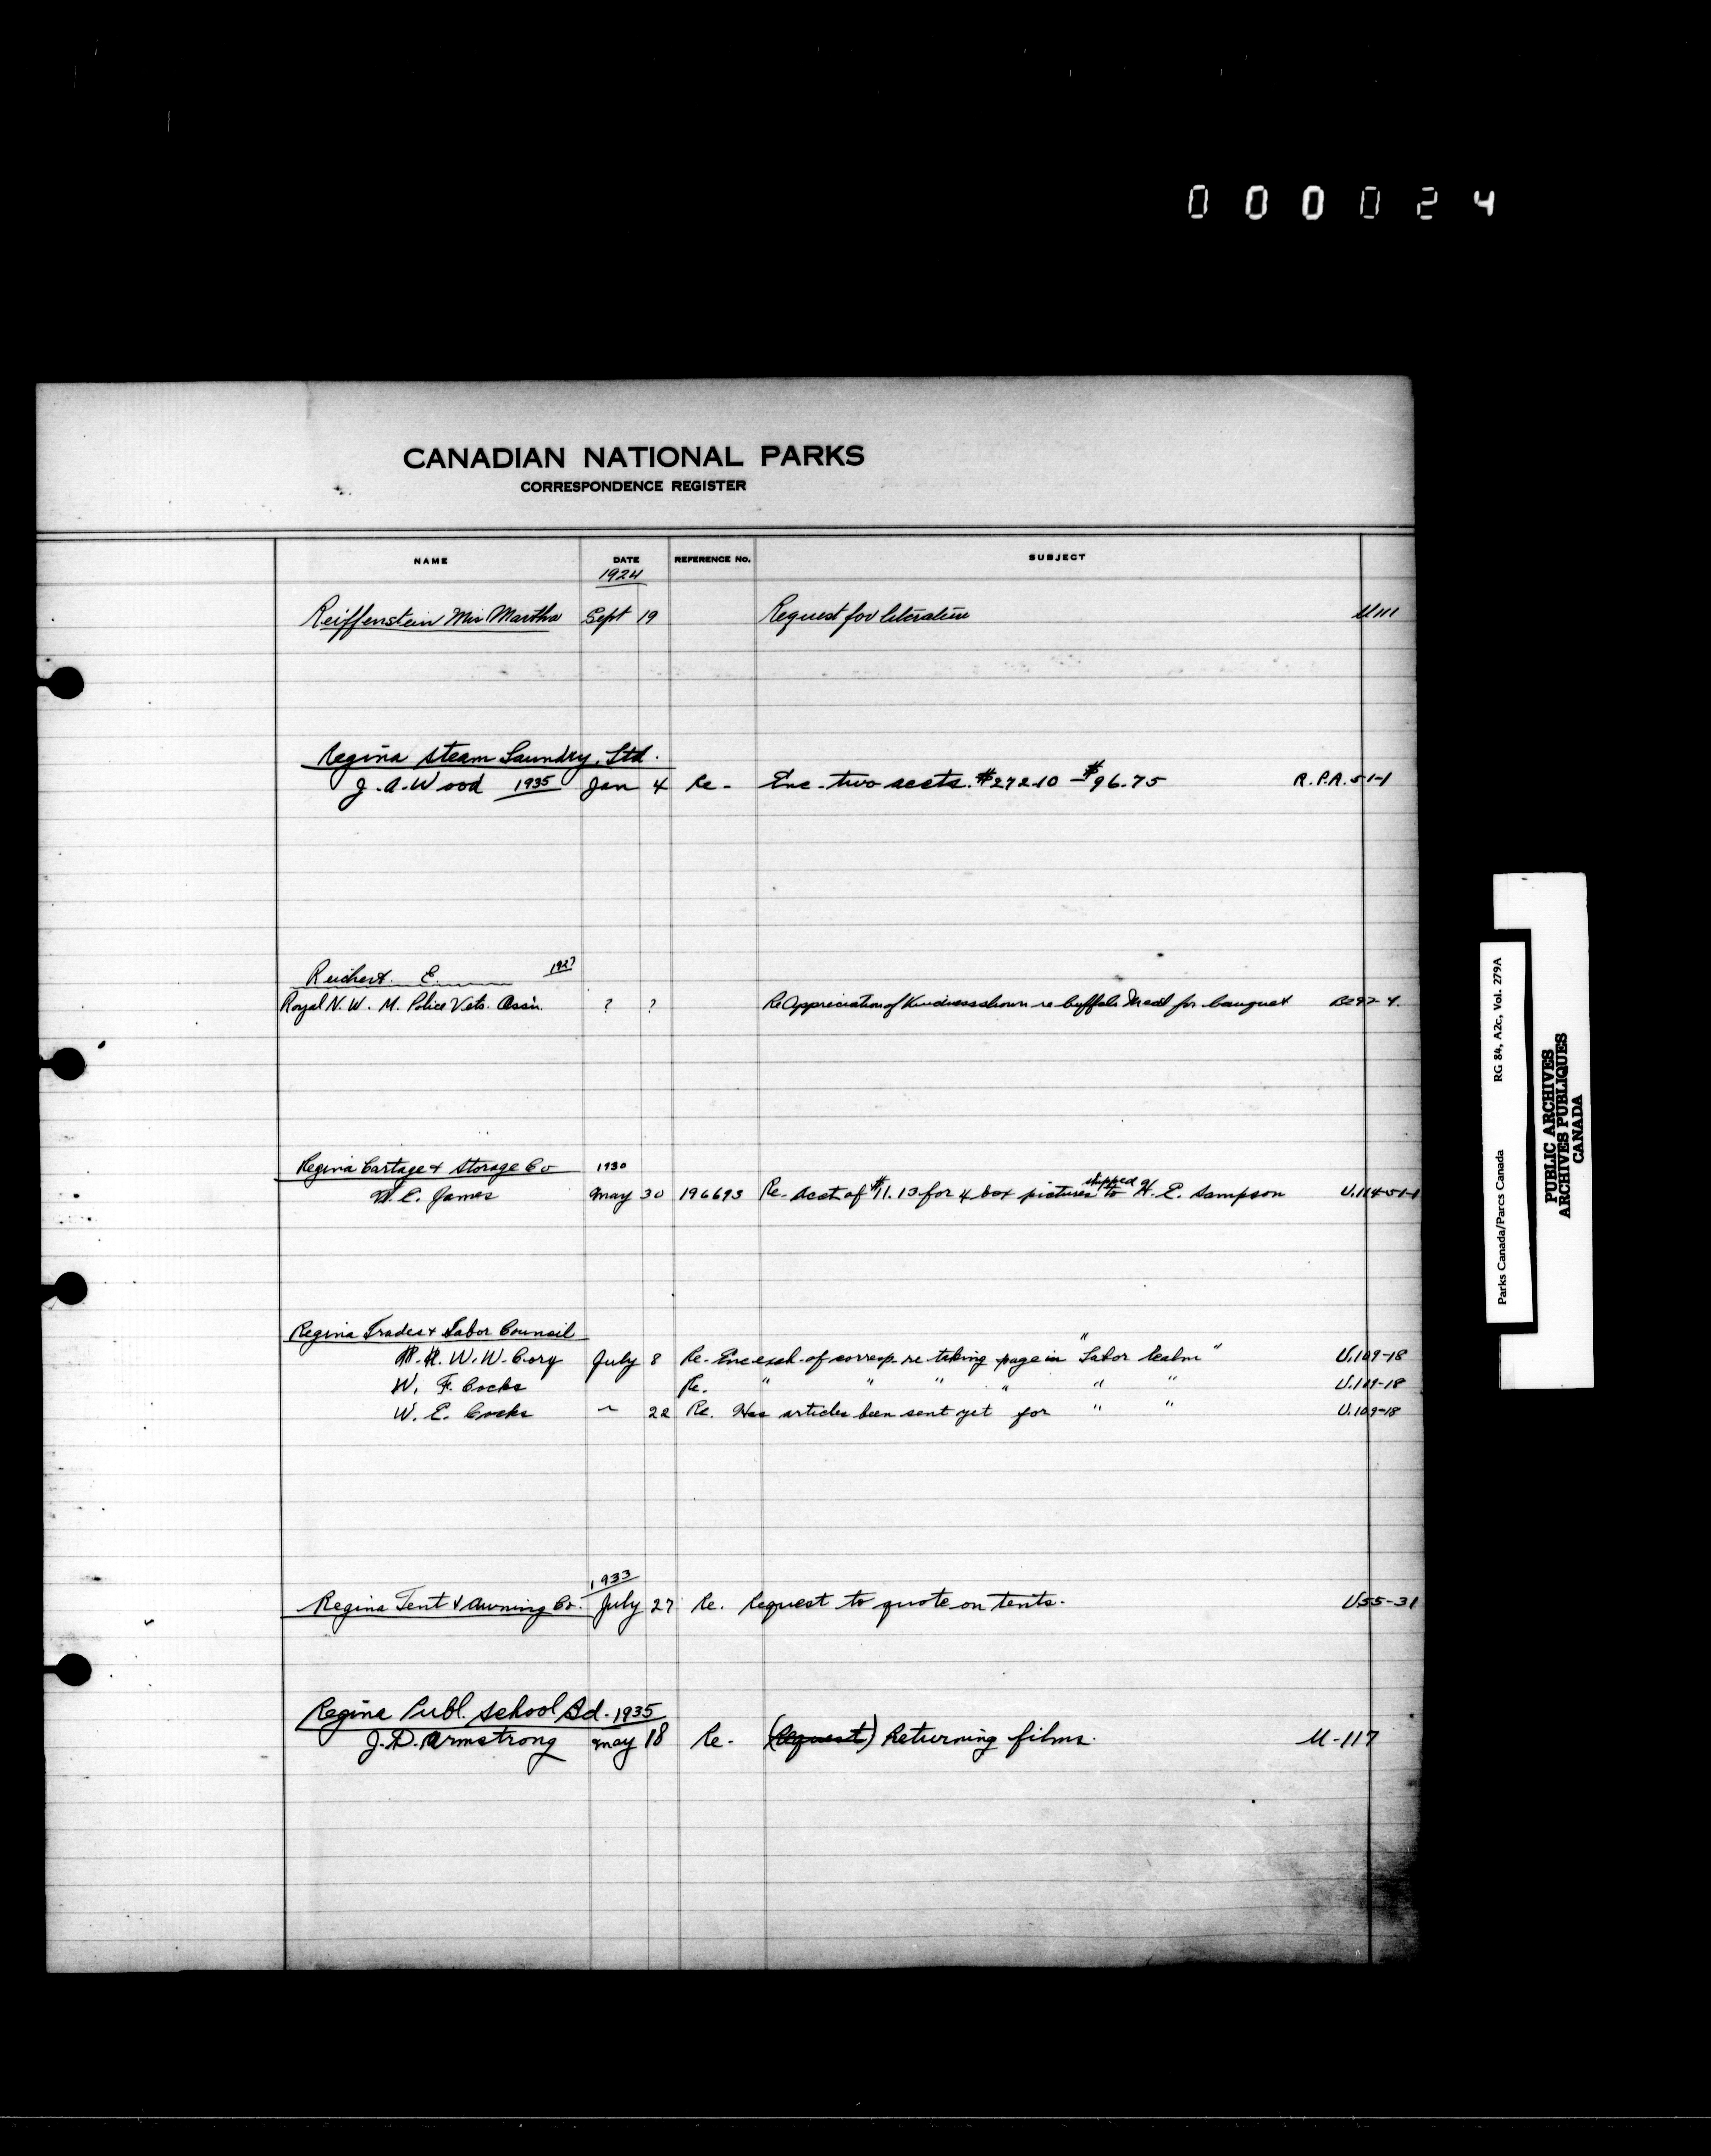 000024
CANADIAN NATIONAL PARKS
CORRESPONDENCE REGISTER
NAME DATE REFERENCE No. SUBJECT
1924
Reiffenstein Miss Martha Sept 19 Request for literature U111
Regina Steam Laundry, Ltd.
J. A. Wood 1935 Jan 4 Re- Enc. two accts. $272.10 - $96.75 R.P.A. 51-1
Reichert E 1927
Royal N. W. M. Police Vets. Assn. ? ? Re Appreciation of Kindness shown re buffalo meat for banquet
Regina Cartage & Storage Co 1930
W. E. James May 30 196693 Re- Acct of $11.13 for 4 box pictures shipped to H. E. Sampson U.114-51-1
Regina Trades & Labor Council
W. W. Cory July 8 Re- Enc exch. of corresp. re taking page in "Labor Realm" U.109-18
W. F. Cocks Re. " " " " " " U.109-18
W. E. Cocks 22 Re. Has articles been sent yet for " " U.109-18
1933
Regina Tent & Awning Co. July 27 Re. Request to quote on tents. U.55-31
Regina Publ. School Bd. 1935
J. D. Armstrong May 18 Re- (Request) Returning films. U-117
Parks Canada/Parcs Canada RG 84, A2c, Vol. 279A
PUBLIC ARCHIVES
ARCHIVES PUBLIQUES
CANADA